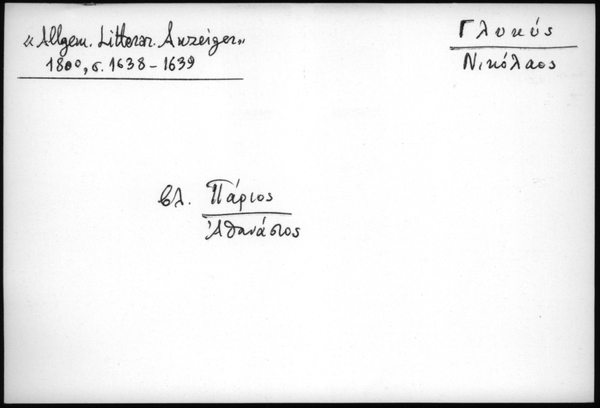 «Allgem. Litterar. Anzeiger»
1800, σ. 1638 - 1639
Γλυκύς
Νικόλαος
βλ. Πάριος
Ἀθανάσιος